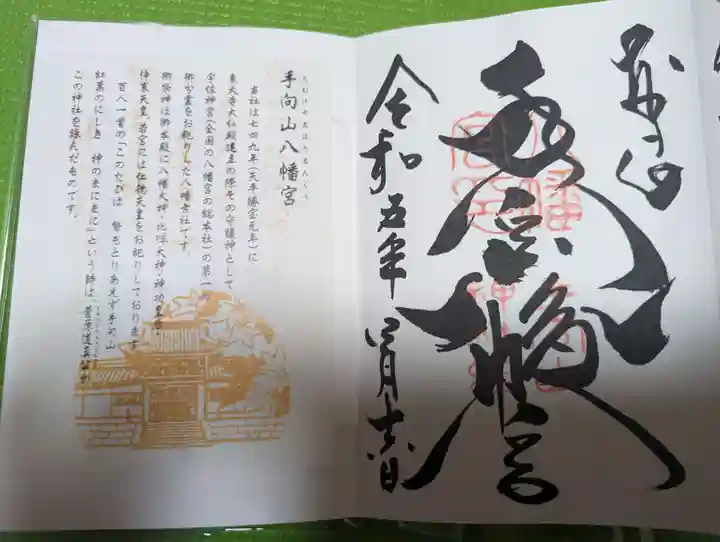 奉拝
手向山八幡宮
令和五年
手向山八幡宮
たむけやまはちまんぐう
当社は七四九年(天平勝宝元年)に
東大寺大仏殿建立の際その守護神として
宇佐神宮(全国の八幡宮の総本社)の第一
御分霊をお祀りした八幡古社です。
御祭神は御本殿に八幡大神・比咩大神・神功皇后・
仲哀天皇、若宮には仁徳天皇をお祀りしております
百人一首の「このたびは 幣もとりあえず手向山
紅葉のにしき 神のまにまに」という詩は、菅原道真公が
この神社を詠んだものです。